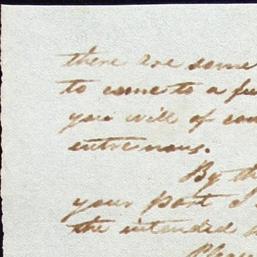 there are some
to come to a fu
you will of cou
entre nous.
By th
your part I
the intended
Pleas